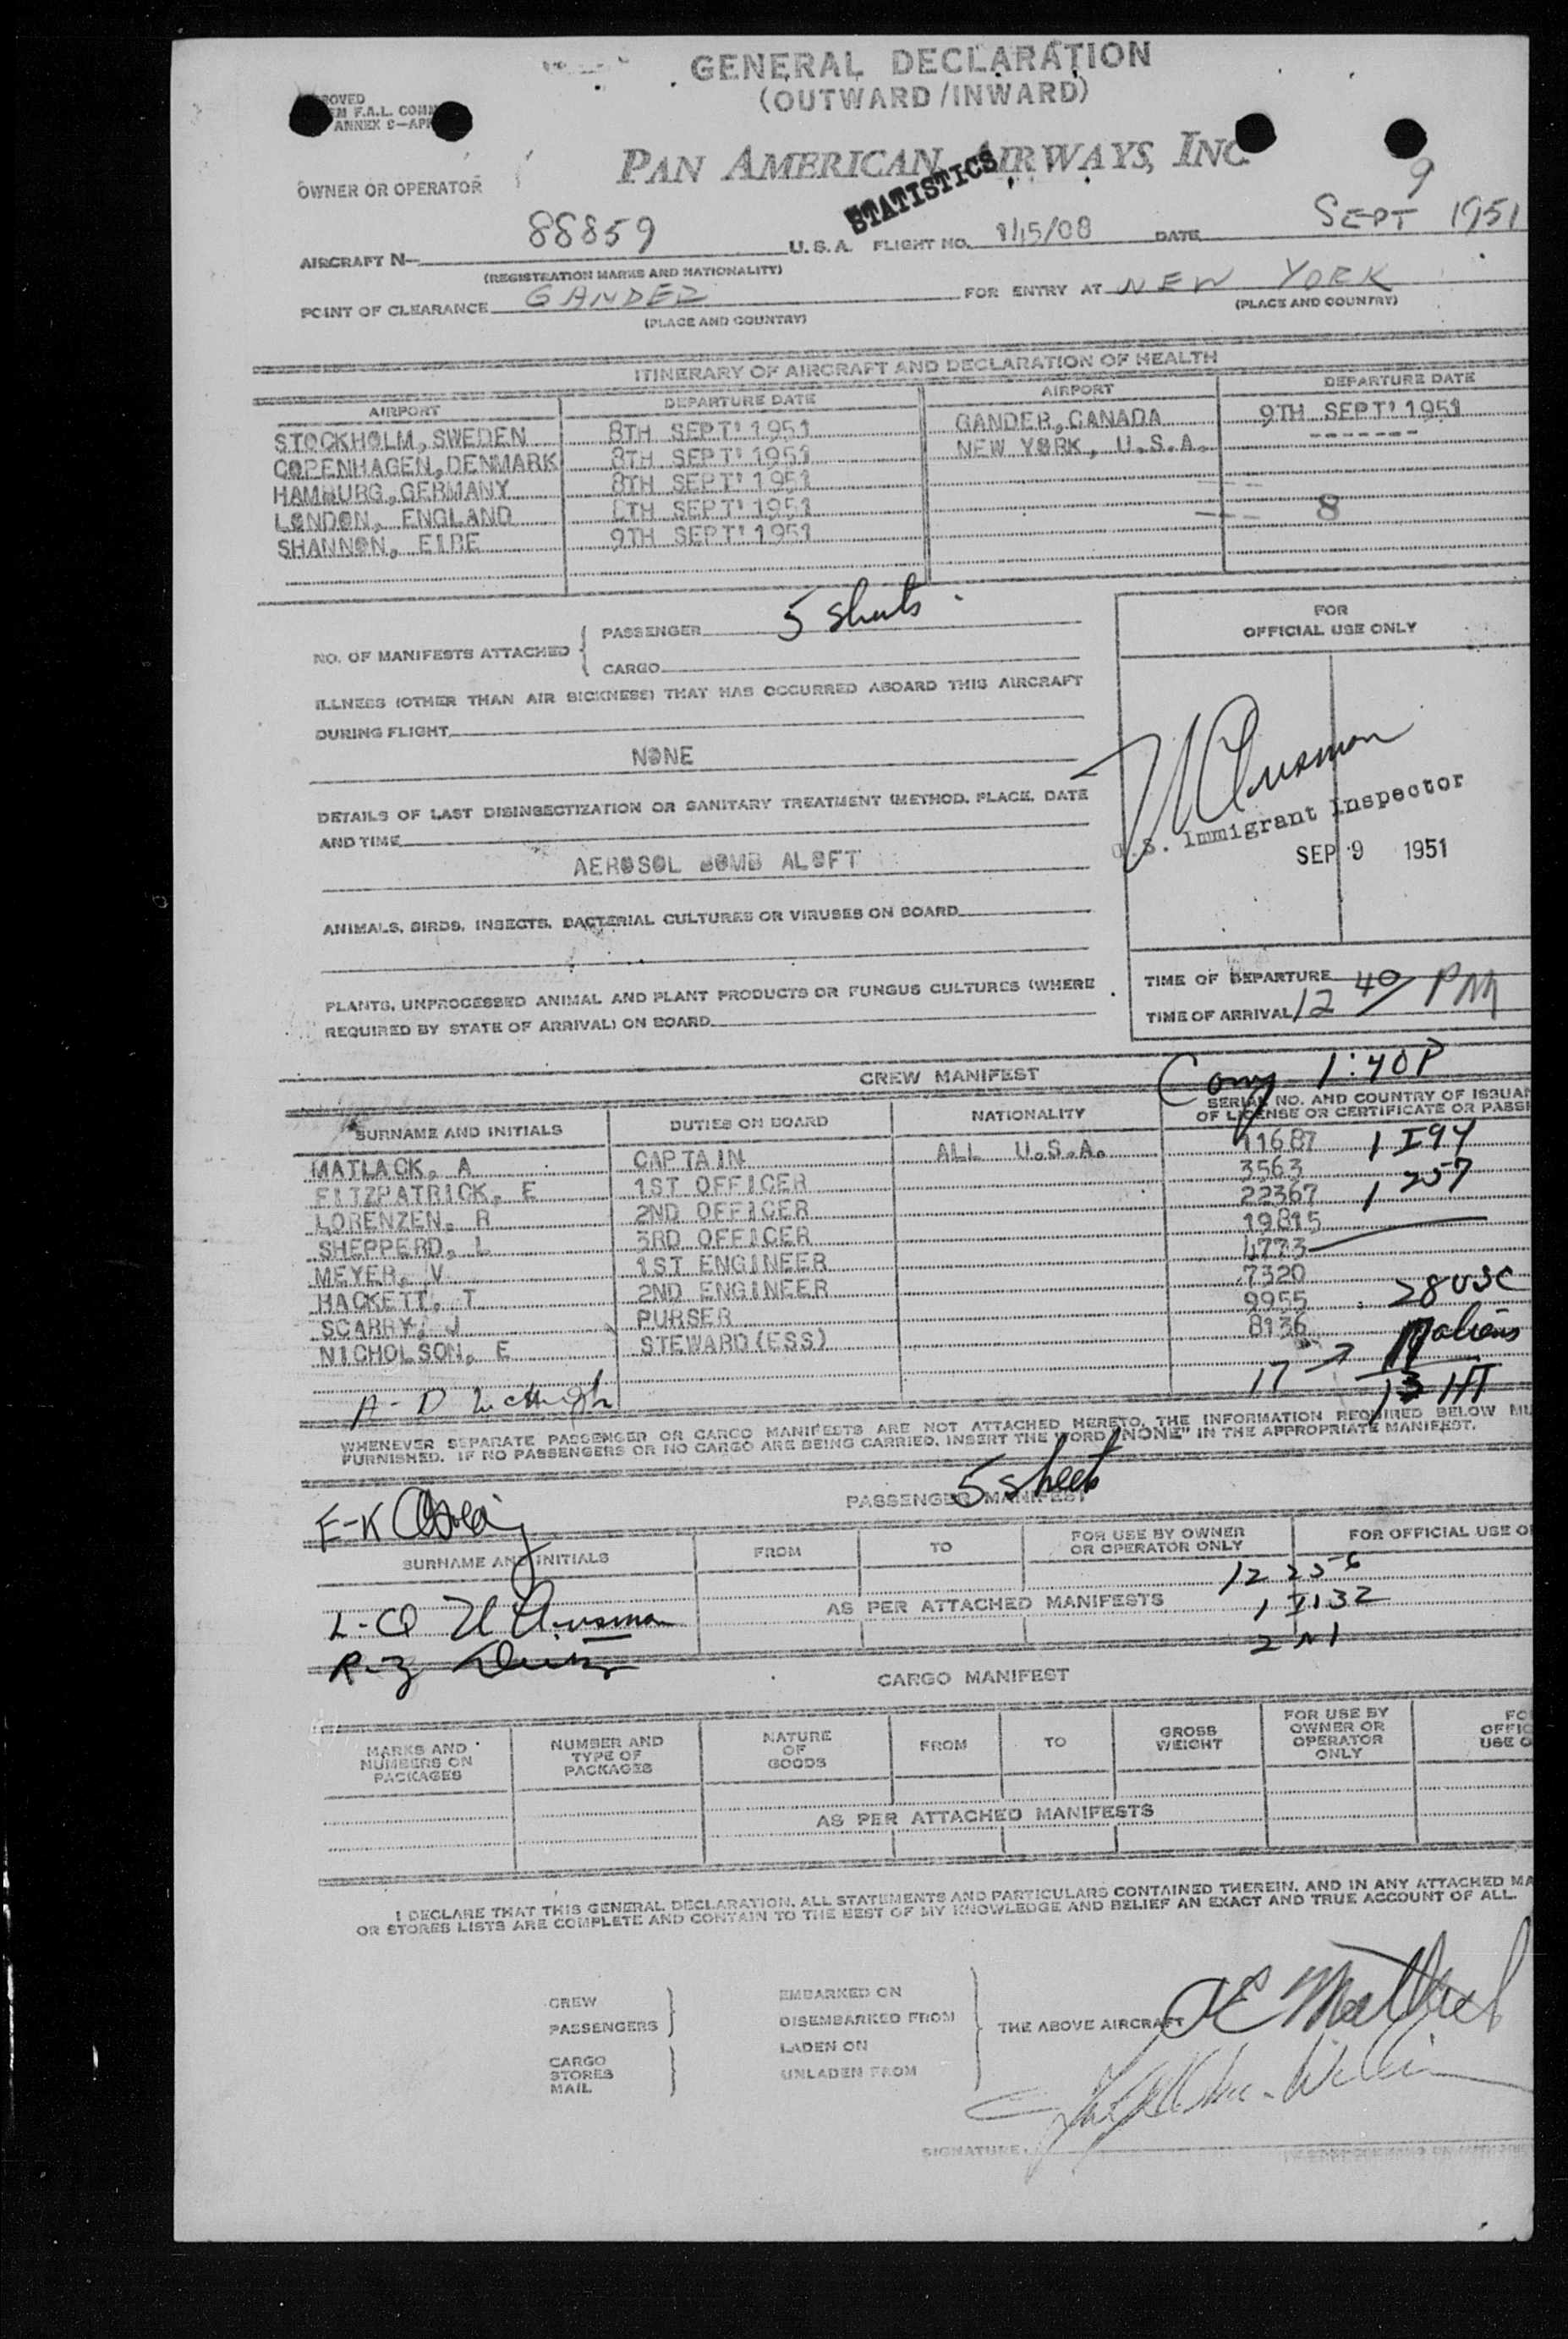 GENERAL DECLARATION
(OUTWARD/INWARD)
F.A.L. COMM
ANNEX 9-APR
PAN AMERICAN AIRWAYS, INC
STATISTICS
OWNER OR OPERATOR
9
AIRCRAFT N- 88859 U.S.A. FLIGHT NO. 145/08 DATE SEPT 1951
(REGISTRATION MARKS AND NATIONALITY)
POINT OF CLEARANCE GANDER FOR ENTRY AT NEW YORK
(PLACE AND COUNTRY) (PLACE AND COUNTRY)
ITINERARY OF AIRCRAFT AND DECLARATION OF HEALTH
AIRPORT DEPARTURE DATE AIRPORT DEPARTURE DATE
STOCKHOLM, SWEDEN 8TH SEPT' 1951 GANDER, CANADA 9TH SEPT' 1951
COPENHAGEN, DENMARK 8TH SEPT' 1951 NEW YORK, U.S.A. -------
HAMBURG, GERMANY 8TH SEPT' 1951
LONDON, ENGLAND 8TH SEPT' 1951 8
SHANNON, EIRE 9TH SEPT' 1951
NO. OF MANIFESTS ATTACHED PASSENGER 5 sheets
CARGO
FOR
OFFICIAL USE ONLY
ILLNESS (OTHER THAN AIR SICKNESS) THAT HAS OCCURRED ABOARD THIS AIRCRAFT
DURING FLIGHT
NONE
DETAILS OF LAST DISINSECTIZATION OR SANITARY TREATMENT (METHOD, PLACE, DATE
AND TIME
AEROSOL BOMB ALOFT
U.S. Immigrant Inspector
SEP 9 1951
ANIMALS, BIRDS, INSECTS, BACTERIAL CULTURES OR VIRUSES ON BOARD
PLANTS, UNPROCESSED ANIMAL AND PLANT PRODUCTS OR FUNGUS CULTURES (WHERE
REQUIRED BY STATE OF ARRIVAL) ON BOARD
TIME OF DEPARTURE
TIME OF ARRIVAL 12 40/ PM
CREW MANIFEST
1:40P
SURNAME AND INITIALS DUTIES ON BOARD NATIONALITY SERIAL NO. AND COUNTRY OF ISSUAN
OF LICENSE OR CERTIFICATE OR PASSP
MATLACK, A CAPTAIN ALL U.S.A. 11687 1 I94
FITZPATRICK, E 1ST OFFICER 3563
LORENZEN, R 2ND OFFICER 22367 1 257
SHEPPERD, L 3RD OFFICER 19815
MEYER, V 1ST ENGINEER 4773
HACKETT, T 2ND ENGINEER 7320
SCARRY, J PURSER 9955 28 USC
NICHOLSON, E STEWARD(ESS) 8136
17
13 HT
A-D
WHENEVER SEPARATE PASSENGER OR CARGO MANIFESTS ARE NOT ATTACHED HERETO, THE INFORMATION REQUIRED BELOW MU
FURNISHED. IF NO PASSENGERS OR NO CARGO ARE BEING CARRIED, INSERT THE WORD "NONE" IN THE APPROPRIATE MANIFEST.
5 sheets
PASSENGER MANIFEST
E-K
SURNAME AND INITIALS FROM TO FOR USE BY OWNER OR OPERATOR ONLY FOR OFFICIAL USE O
12 256
AS PER ATTACHED MANIFESTS 1 I132
L-Q
2 NI
R-Z
CARGO MANIFEST
MARKS AND NUMBERS ON PACKAGES NUMBER AND TYPE OF PACKAGES NATURE OF GOODS FROM TO GROSS WEIGHT FOR USE BY OWNER OR OPERATOR ONLY FO OFFIC USE O
AS PER ATTACHED MANIFESTS
I DECLARE THAT THIS GENERAL DECLARATION, ALL STATEMENTS AND PARTICULARS CONTAINED THEREIN, AND IN ANY ATTACHED MA
OR STORES LISTS ARE COMPLETE AND CONTAIN TO THE BEST OF MY KNOWLEDGE AND BELIEF AN EXACT AND TRUE ACCOUNT OF ALL
CREW EMBARKED ON
PASSENGERS DISEMBARKED FROM THE ABOVE AIRCRAFT
CARGO LADEN ON
STORES UNLADEN FROM
MAIL
SIGNATURE